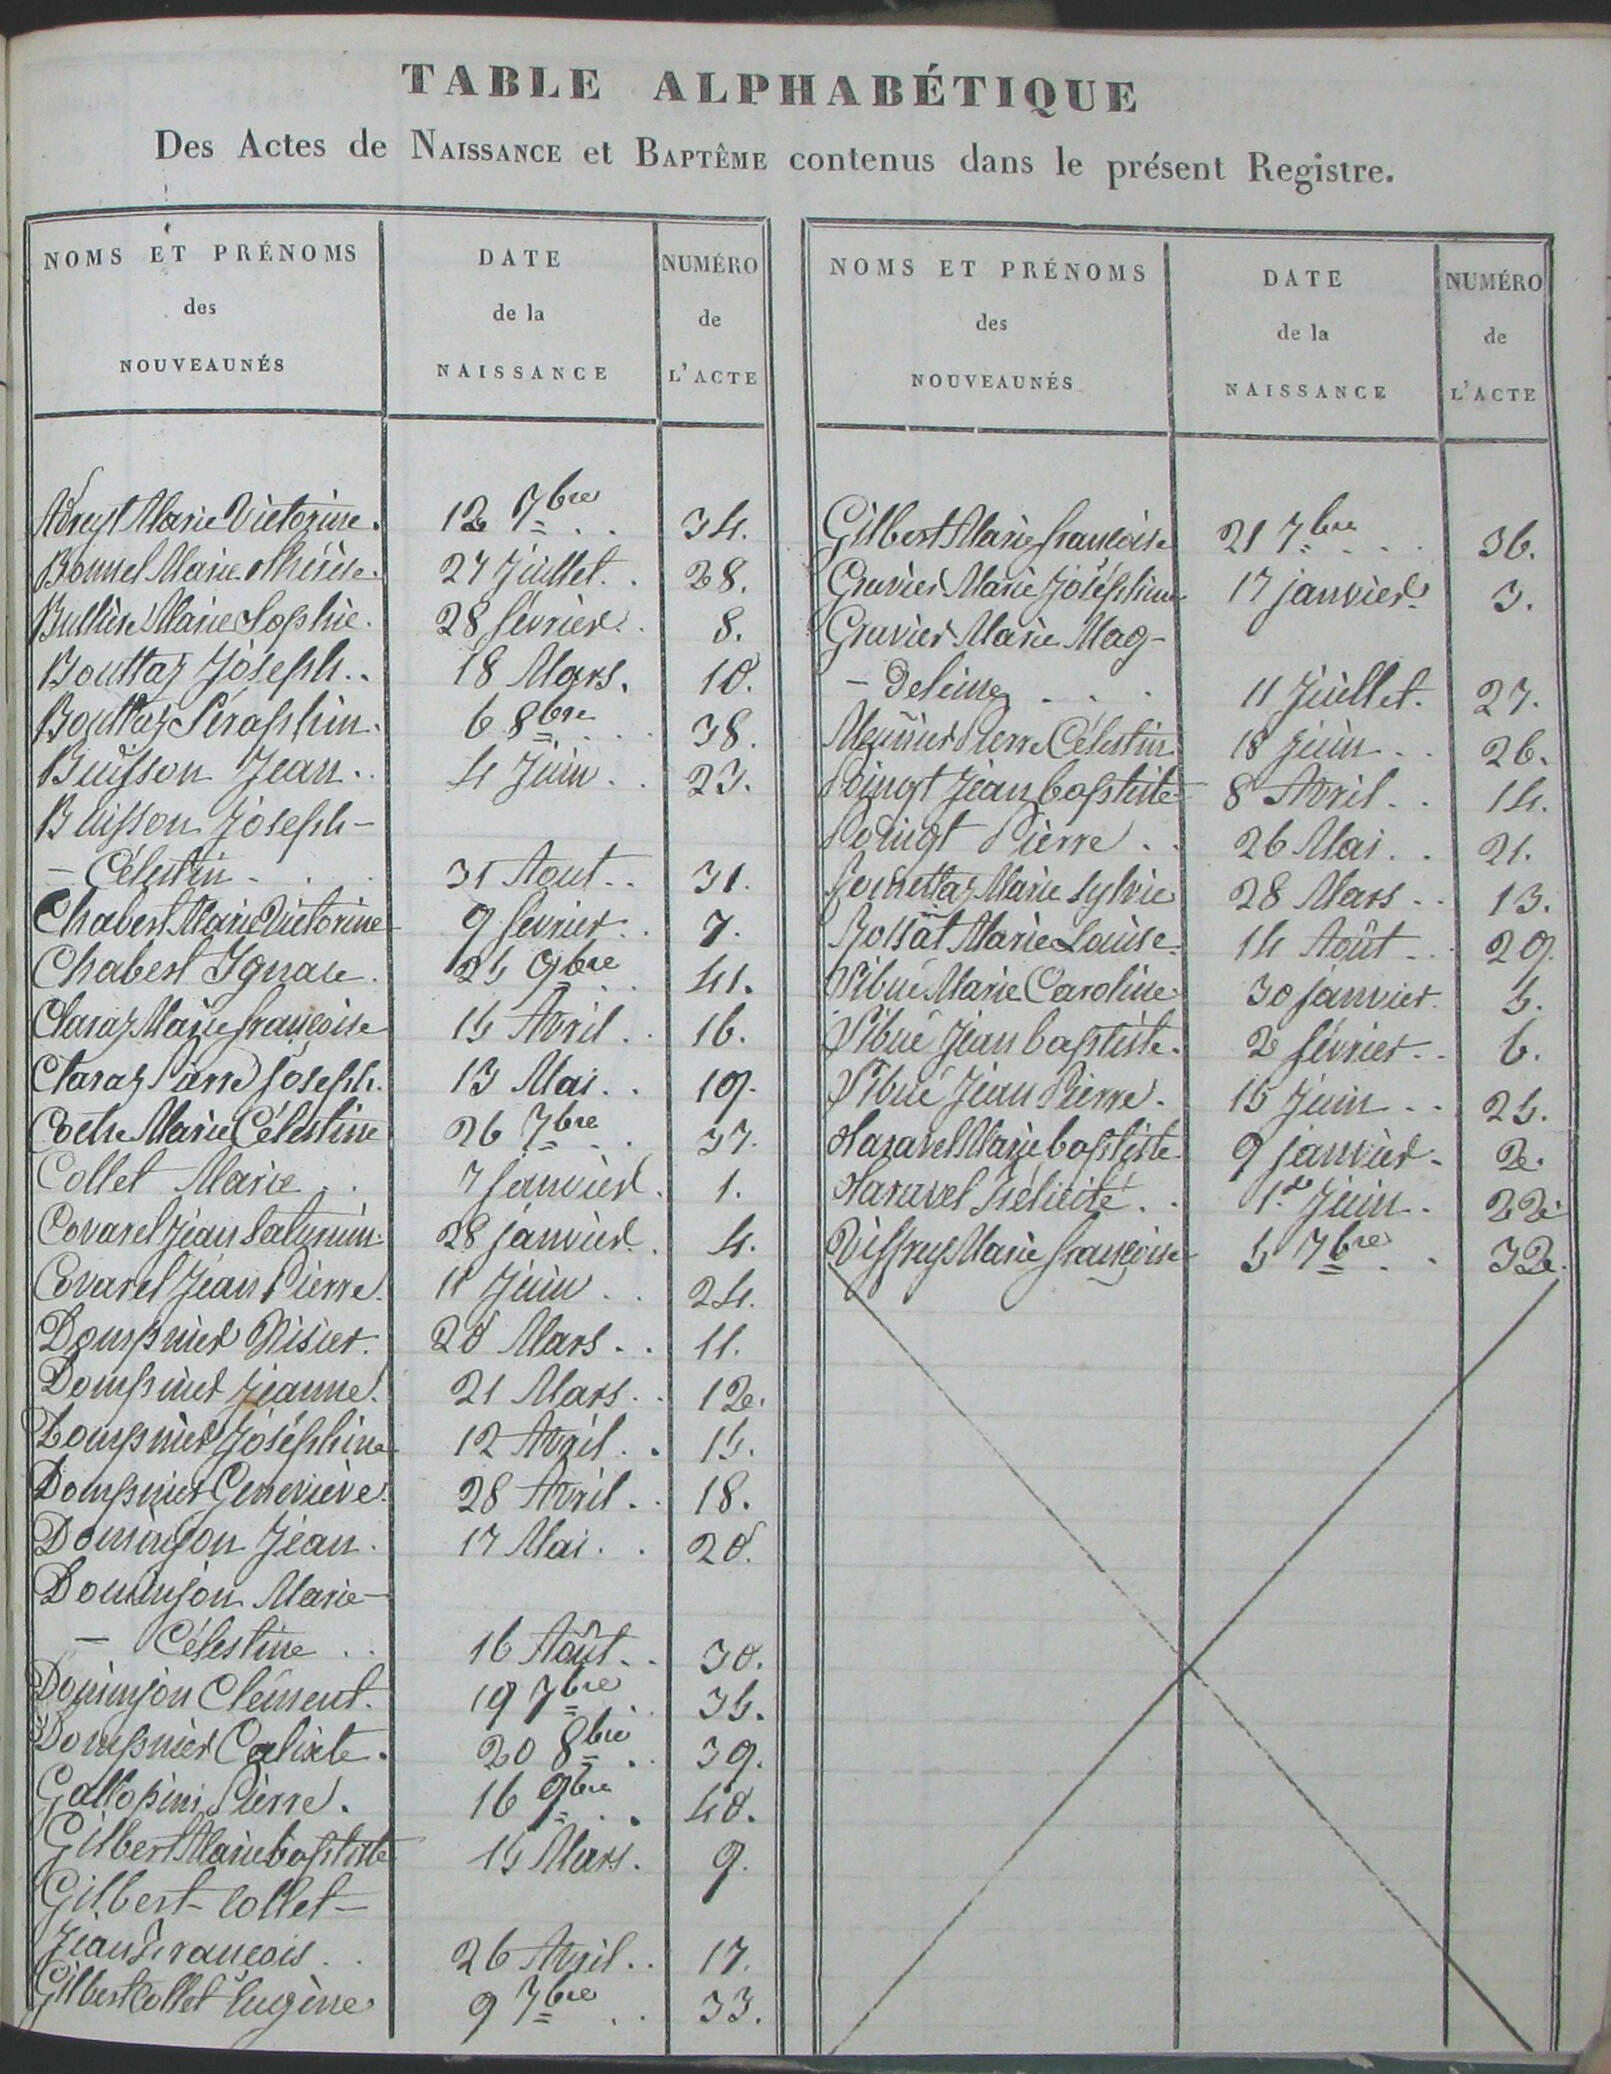 TABLE ALPHABÉTIQUE
Des Actes de NAISSANCE et BAPTÊME contenus dans le présent Registre.
NOMS ET PRÉNOMS
des
NOUVEAUNÉS
DATE
de la
NAISSANCE
NUMÉRO
de
L'ACTE
Marie Victorine. 12 7bre . . 34.
Bonnel Marie Thérèse. 27 Juillet . . 28.
Marie Sophie. 28 février . . 8.
Bouttaz Joseph . . 18 Mars. 10.
Bouttaz Séraphin. 6 8bre . . . 38.
Buisson Jean . . 4 Juin . . 23.
Buisson Joseph-
- Célestin . . . 31 Aout . . 31.
Chabert Marie Victorine 9 février . . 7.
Chabert Ignace. 25 9bre . . 41.
Claraz Marie françoise 15 Avril . . 16.
Claraz Pierre Joseph. 13 Mai . . 19.
Marie Célestine 26 7bre . . 37.
Collet Marie . . 7 janvier . 1.
Covarel Jean Saturnin. 28 janvier . . 4.
Covarel Jean Pierre. 11 Juin . . 24.
Dompnier Nisier. 20 Mars . . 11.
Dompnier Jeanne. 21 Mars . . 12.
Dompnier Joséphine 12 Avril . . 15.
Dompnier Geneviève. 28 Avril . . 18.
Dominjon Jean. 17 Mai . . 20.
Dominjon Marie-
- Célestine . . 16 Août . . 30.
Dominjon Clément. 19 7bre . . 35.
Dompnier Calixte. 20 8bre . . 39.
Gallopini Pierre. 16 9bre . . 40.
Gilbert Marie baptiste 15 Mars. 9.
Gilbert-Collet-
Jean François . . 26 Avril . . 17.
Gilbert Collet Eugène 9 7bre . . 33.
NOMS ET PRÉNOMS
des
NOUVEAUNÉS
DATE
de la
NAISSANCE
NUMÉRO
de
L'ACTE
Gilbert Marie françoise 21 7bre . . . 36.
Gravier Marie Joséphine 17 janvier. 3.
Gravier Marie Mag-
- deleine . . . 11 Juillet. 27.
Meunier Pierre Célestin 18 Juin . . 26.
Jean baptiste 8 Avril . . 14.
Pierre . . 26 Mai . . 21.
Marie Sylvie 28 Mars . . 13.
Rossat Marie Louise. 14 Août . . 29.
Sibué Marie Caroline 30 janvier. 5.
Sibué Jean baptiste. 2 février . . 6.
Sibué Jean Pierre. 15 Juin . . 25.
Taravel Marie baptiste 9 janvier. 2.
Taravel Félicité . . 1er Juin . 22.
Marie françoise 5 7bre . . 32.